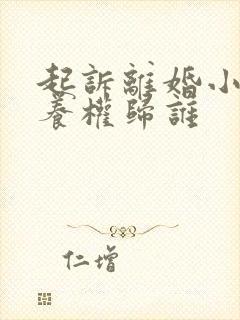 起訴離婚小
養權歸誰
仁增